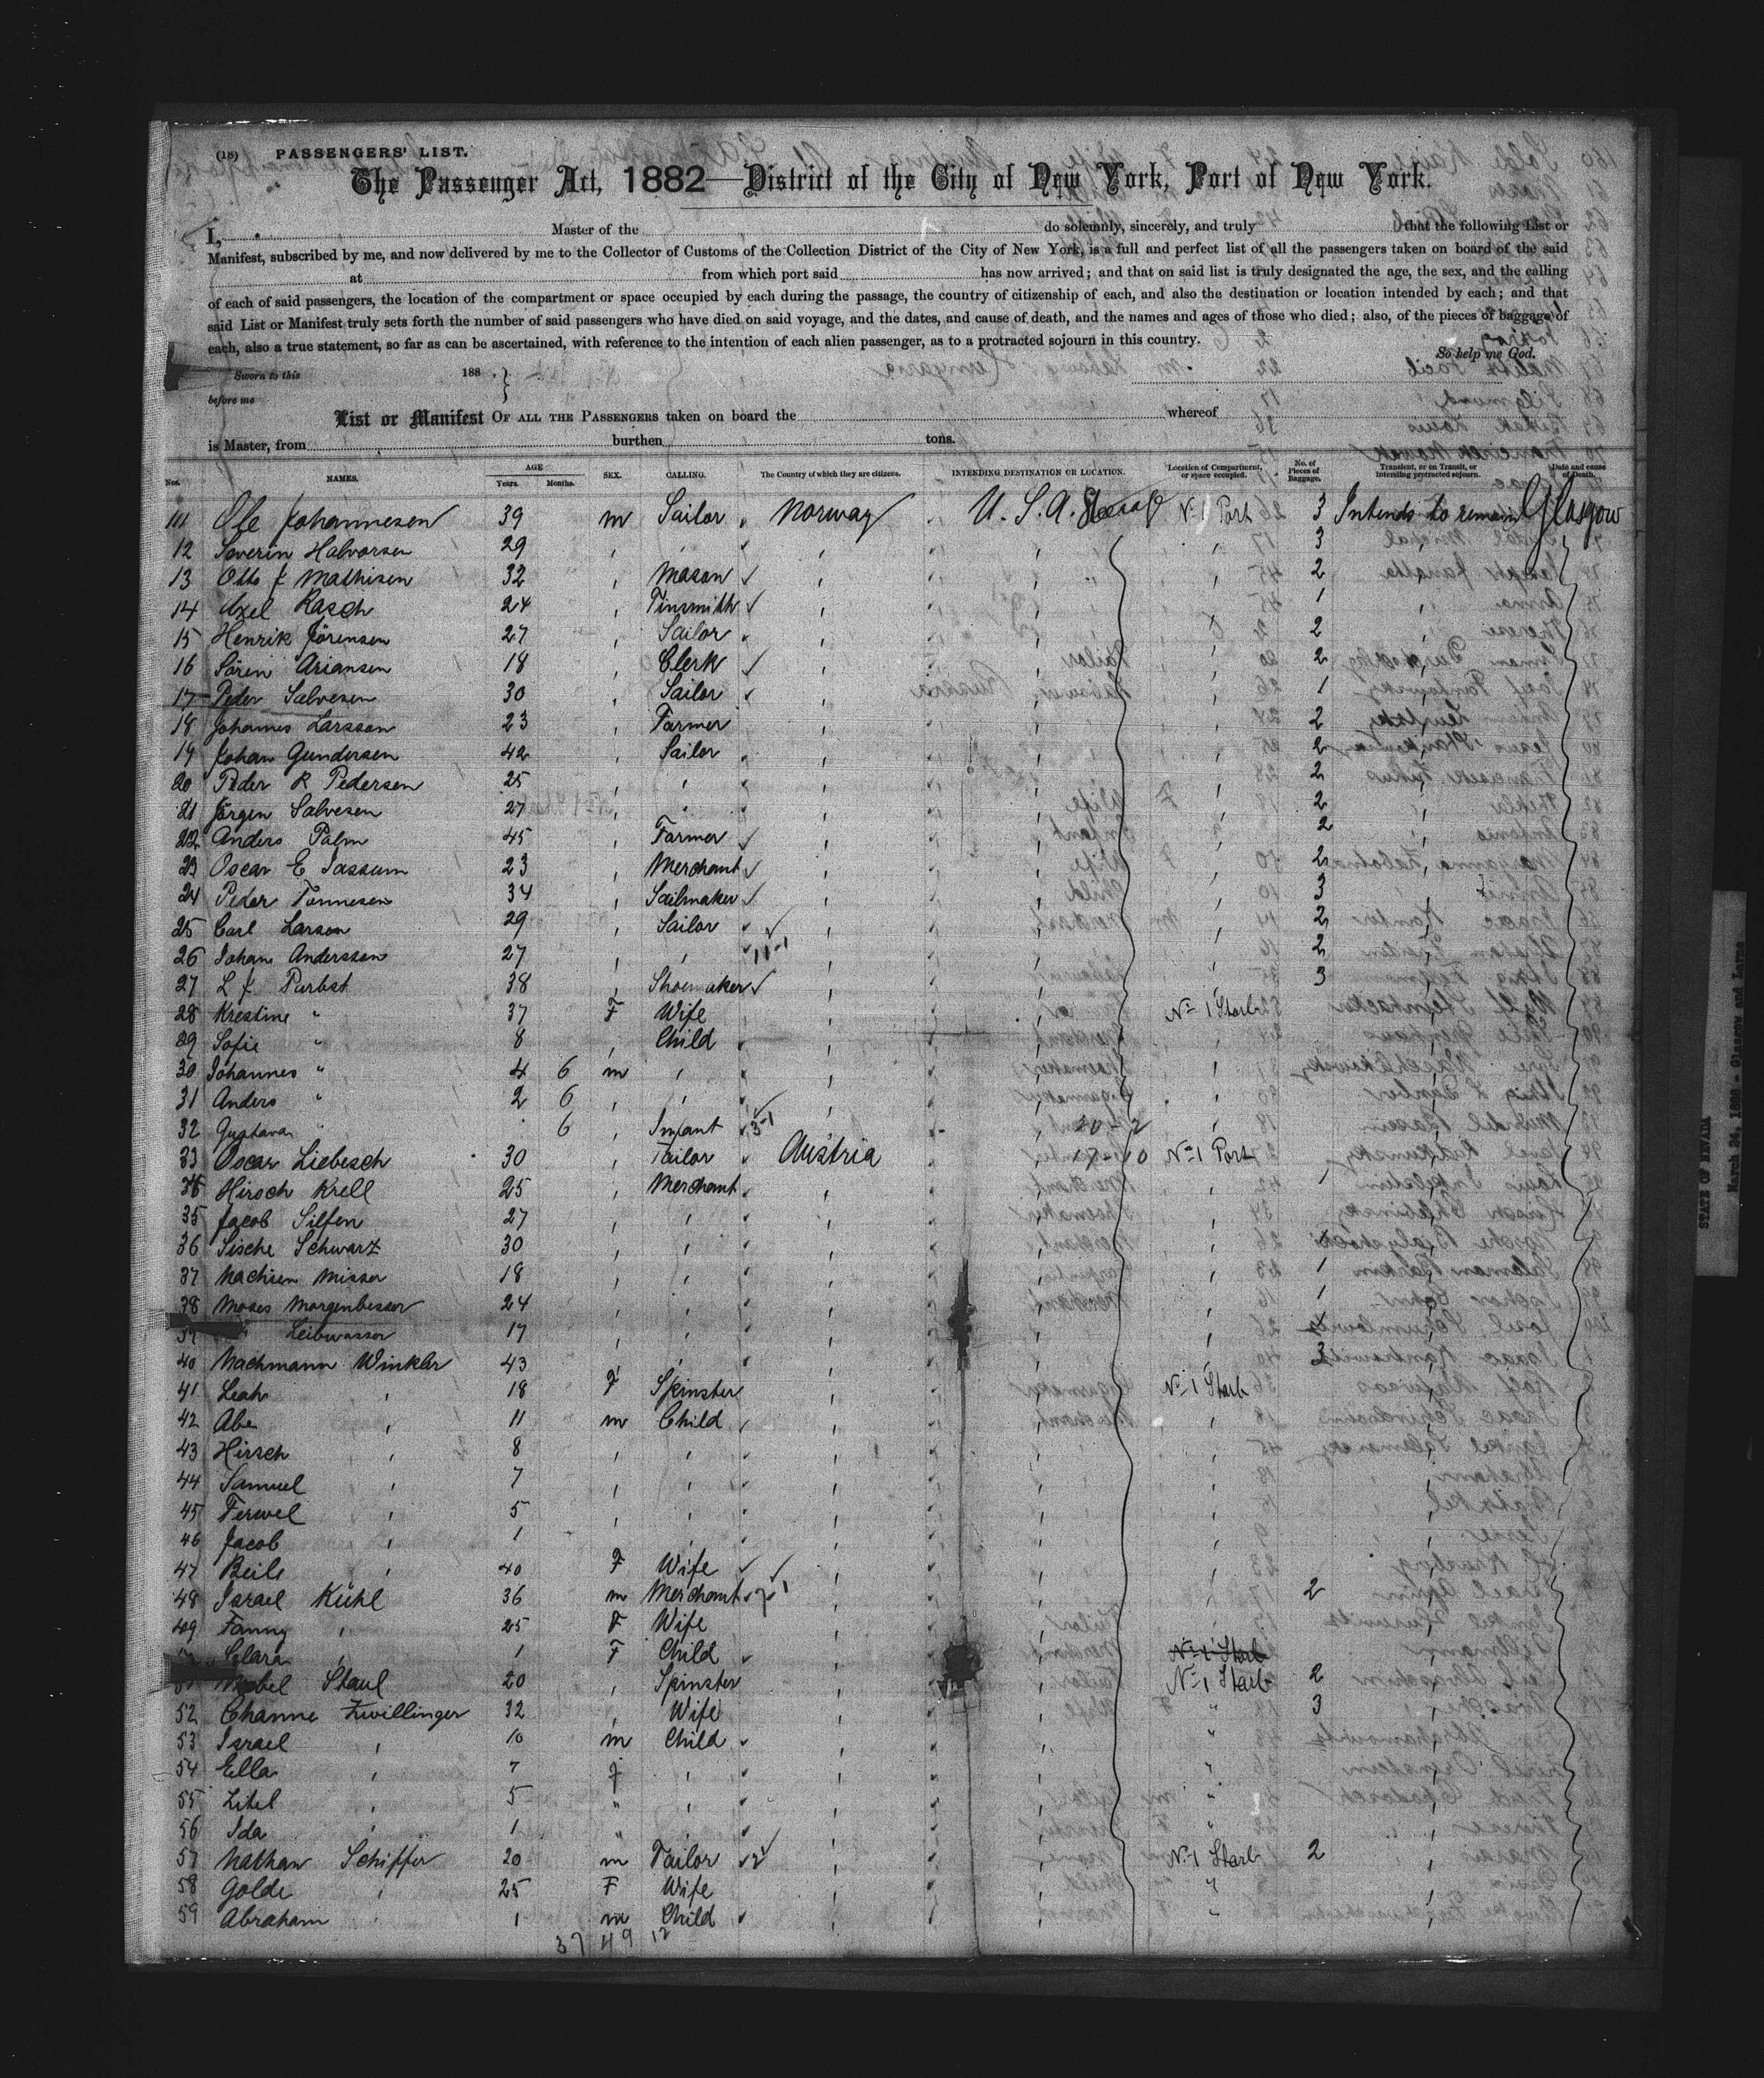 (18) PASSENGERS' LIST.
The Passenger Act, 1882—District of the City of New York, Port of New York.
I, Master of the do solemnly, sincerely, and truly that the following List or
Manifest, subscribed by me, and now delivered by me to the Collector of Customs of the Collection District of the City of New York, is a full and perfect list of all the passengers taken on board of the said
at from which port said has now arrived; and that on said list is truly designated the age, the sex, and the calling
of each of said passengers, the location of the compartment or space occupied by each during the passage, the country of citizenship of each, and also the destination or location intended by each; and that
said List or Manifest truly sets forth the number of said passengers who have died on said voyage, and the dates, and cause of death, and the names and ages of those who died; also, of the pieces of baggage of
each, also a true statement, so far as can be ascertained, with reference to the intention of each alien passenger, as to a protracted sojourn in this country.
So help me God.
Sworn to this 188 .
before me
List or Manifest OF ALL THE PASSENGERS taken on board the whereof
is Master, from burthen tons.
Nos. NAMES. AGE Years. Months. SEX. CALLING. The Country of which they are citizens. INTENDING DESTINATION OR LOCATION. Location of Compartment, or space occupied. No. of Pieces of Baggage. Transient, or on Transit, or intending protracted sojourn. Date and cause of Death.
111 Ole Johannesen 39 m Sailor Norway U.S.A. No 1 Port 3 Intends to remain Glasgow
12 Severin Halvorsen 29 " " " " " 3 "
13 Otto J Mathisen 32 " Mason " " " 2 "
14 Axel Rasch 24 " Tinsmith " " " 1 "
15 Henrik Jörensen 27 " Sailor " " " 2 "
16 Sören Ariansen 18 " Clerk " " " 2 "
17 Peder Salvesen 30 " Sailor " " " 1 "
18 Johannes Larsson 23 " Farmer " " " 2 "
19 Johan Gundersen 42 " Sailor " " " 2 "
20 Peder R Pedersen 25 " " " " " 2 "
21 Jörgen Salvesen 27 " " " " " 2 "
22 Anders Palm 45 " Farmer " " " 2 "
23 Oscar E Jassum 23 " Merchant " " " 2 "
24 Peder Tonnesen 34 " Sailmaker " " " 3 "
25 Carl Larson 29 " Sailor " " " 2 "
26 Johan Andersson 27 " " 11-1 " " " 2 "
27 L J Parbst 38 " Shoemaker " " " 3 "
28 Krestine " 37 F Wife " " No 1 Starb "
29 Sofie " 8 " Child " " " "
30 Johannes " 4 6 m " " " " "
31 Anders " 2 6 " " " " " "
32 Gustava " 6 " Infant 3-1 "
33 Oscar Liebesch 30 " Tailor Austria " No 1 Port "
34 Hirsch Krell 25 " Merchant " " " 1 "
35 Jacob Silfen 27 " " " " " "
36 Sische Schwartz 30 " " " " " "
37 Nachsen Misser 18 " " " " " 1 "
38 Moses Morgenbesser 24 " " " " " 1 "
Leibwasser 17 " " " " " "
40 Nachmann Winkler 43 " " " " " 3 "
41 Leah " 18 F Spinster " " No 1 Starb "
42 Abe " 11 m Child " " " "
43 Hirsch " 8 " " " " " "
44 Samuel " 7 " " " " " "
45 Ferwel " 5 " " " " " "
46 Jacob " 1 " " " " " "
47 Beile " 40 F Wife " " " "
48 Israel Kühl 36 m Merchant " " " 2 "
49 Fanny " 25 F Wife " " "
Clara " 1 F Child " " No 1 Starb "
Staul 20 " Spinster " " No 1 Starb 2 "
52 Channe Zwillinger 32 " Wife " " " 3 "
53 Israel " 10 m Child " " " "
54 Ella " 7 f " " " " "
55 Litel " 5 " " " " " "
56 Ida " 1 " " " " " "
57 Nathan Schiffer 20 m Tailor " " No 1 Starb 2 "
58 Golde " 25 F Wife " " " "
59 Abraham " 1 m Child " " " "
37 49 12
STATE OF NEVADA
March 24, 1892 - Glasgow and Larne